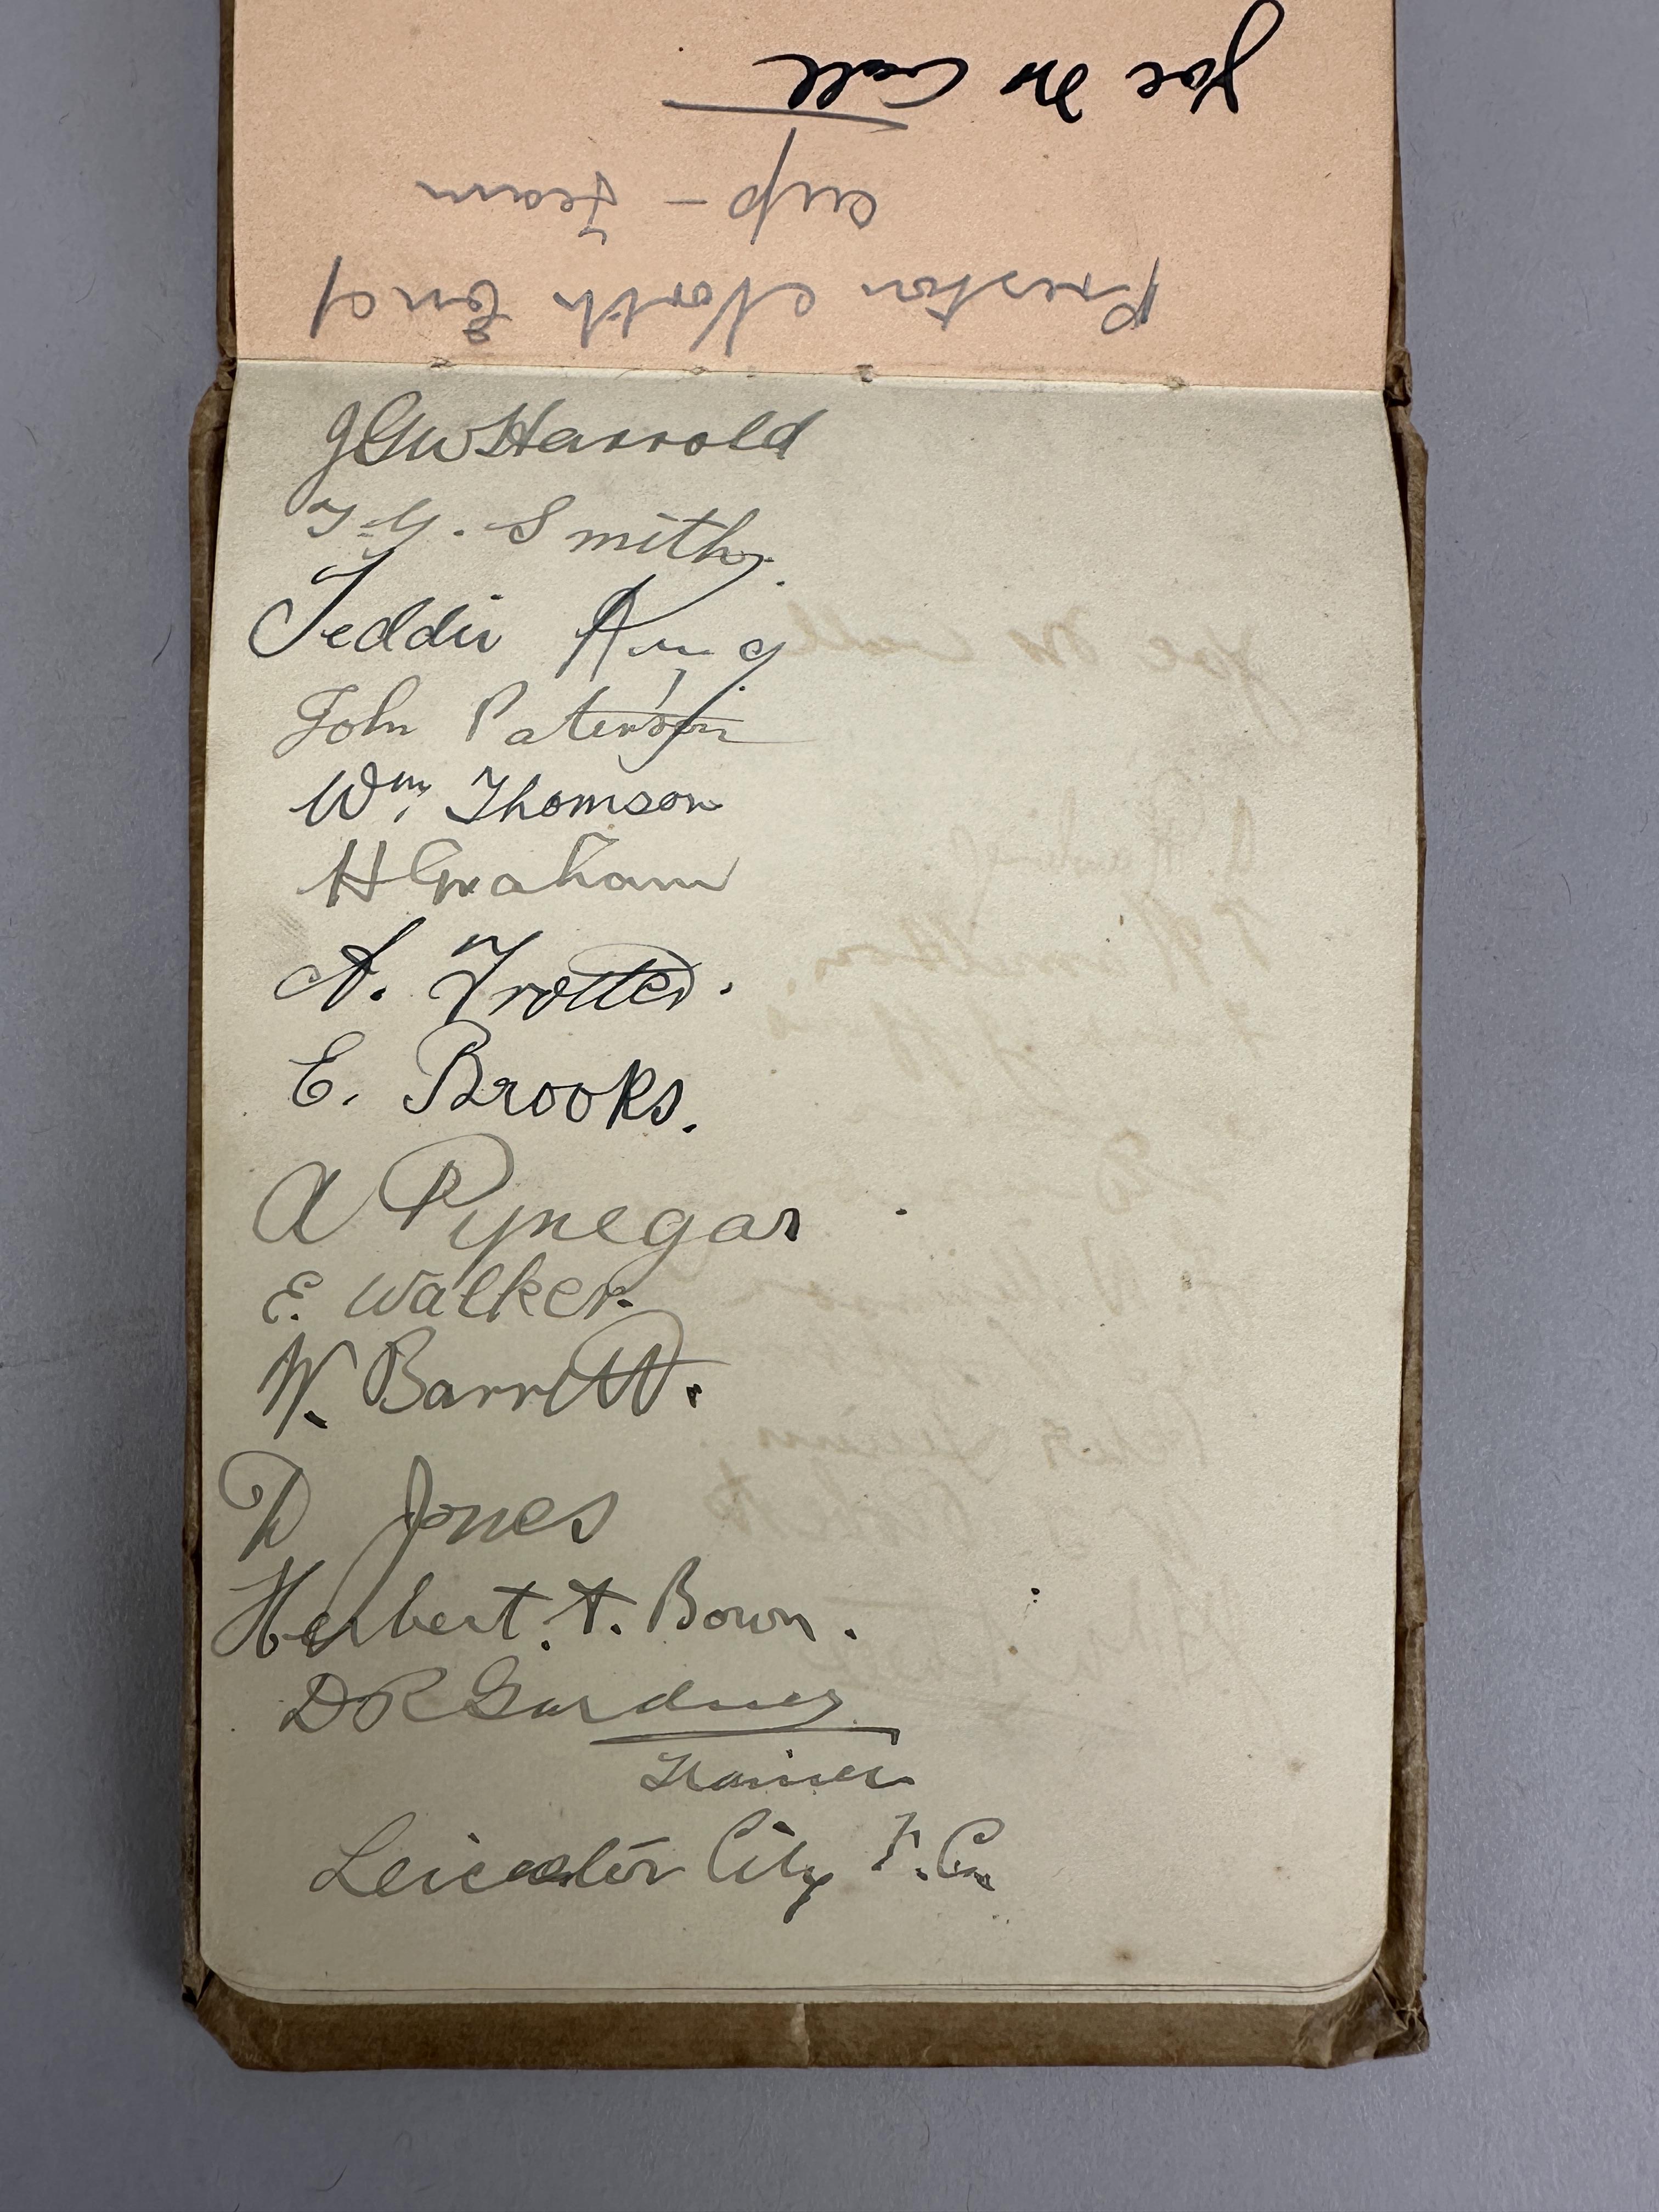 Joe McCall
Cup - Team
Preston North End
JGW Harrold
T. G. Smith.
Teddie King
John Paterson
Wm. Thomson
H Graham
A. Trotter.
E. Brooks.
A Pynegar
E. Walker.
W. Barrett.
D Jones
Herbert. A. Bown.
D R Gardner
Trainer
Leicester City F. C.